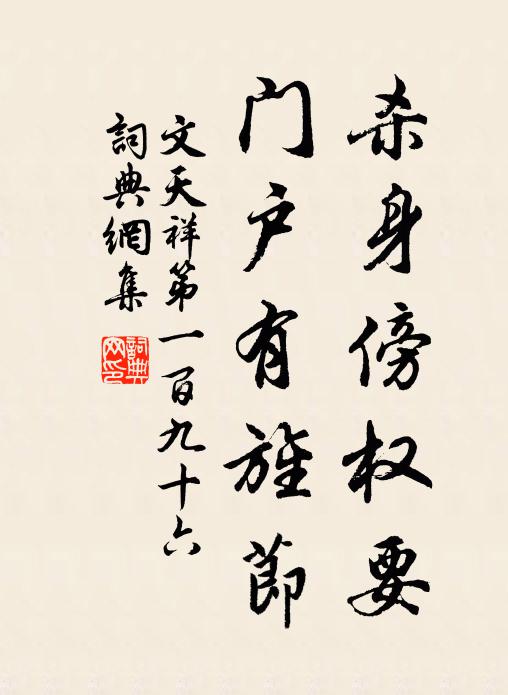 杀身傍权要
门户有旌節
文天祥第一百九十六
詞典網集
詞典网印